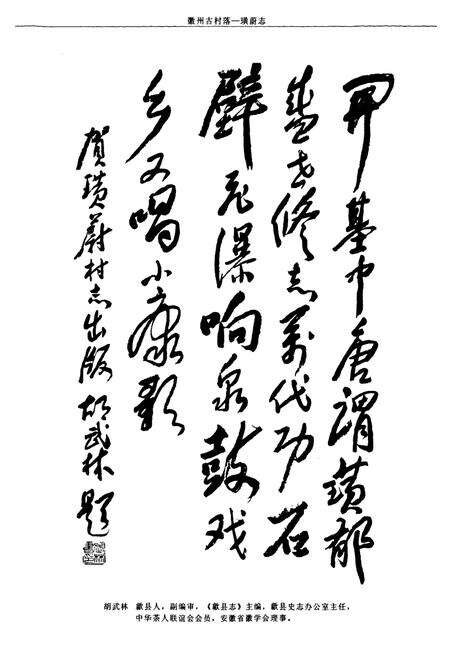 徽州古村落—璜蔚志
開基中唐谓璜郁
盛世修志萬代功石
壁飞瀑响泉鼓戏
乡又唱小康歌
贺璜蔚村志出版 胡武林 题
胡武林 歙县人,副编审,《歙县志》主编,歙县史志办公室主任,
中华茶人联谊会会员,安徽省徽学会理事。